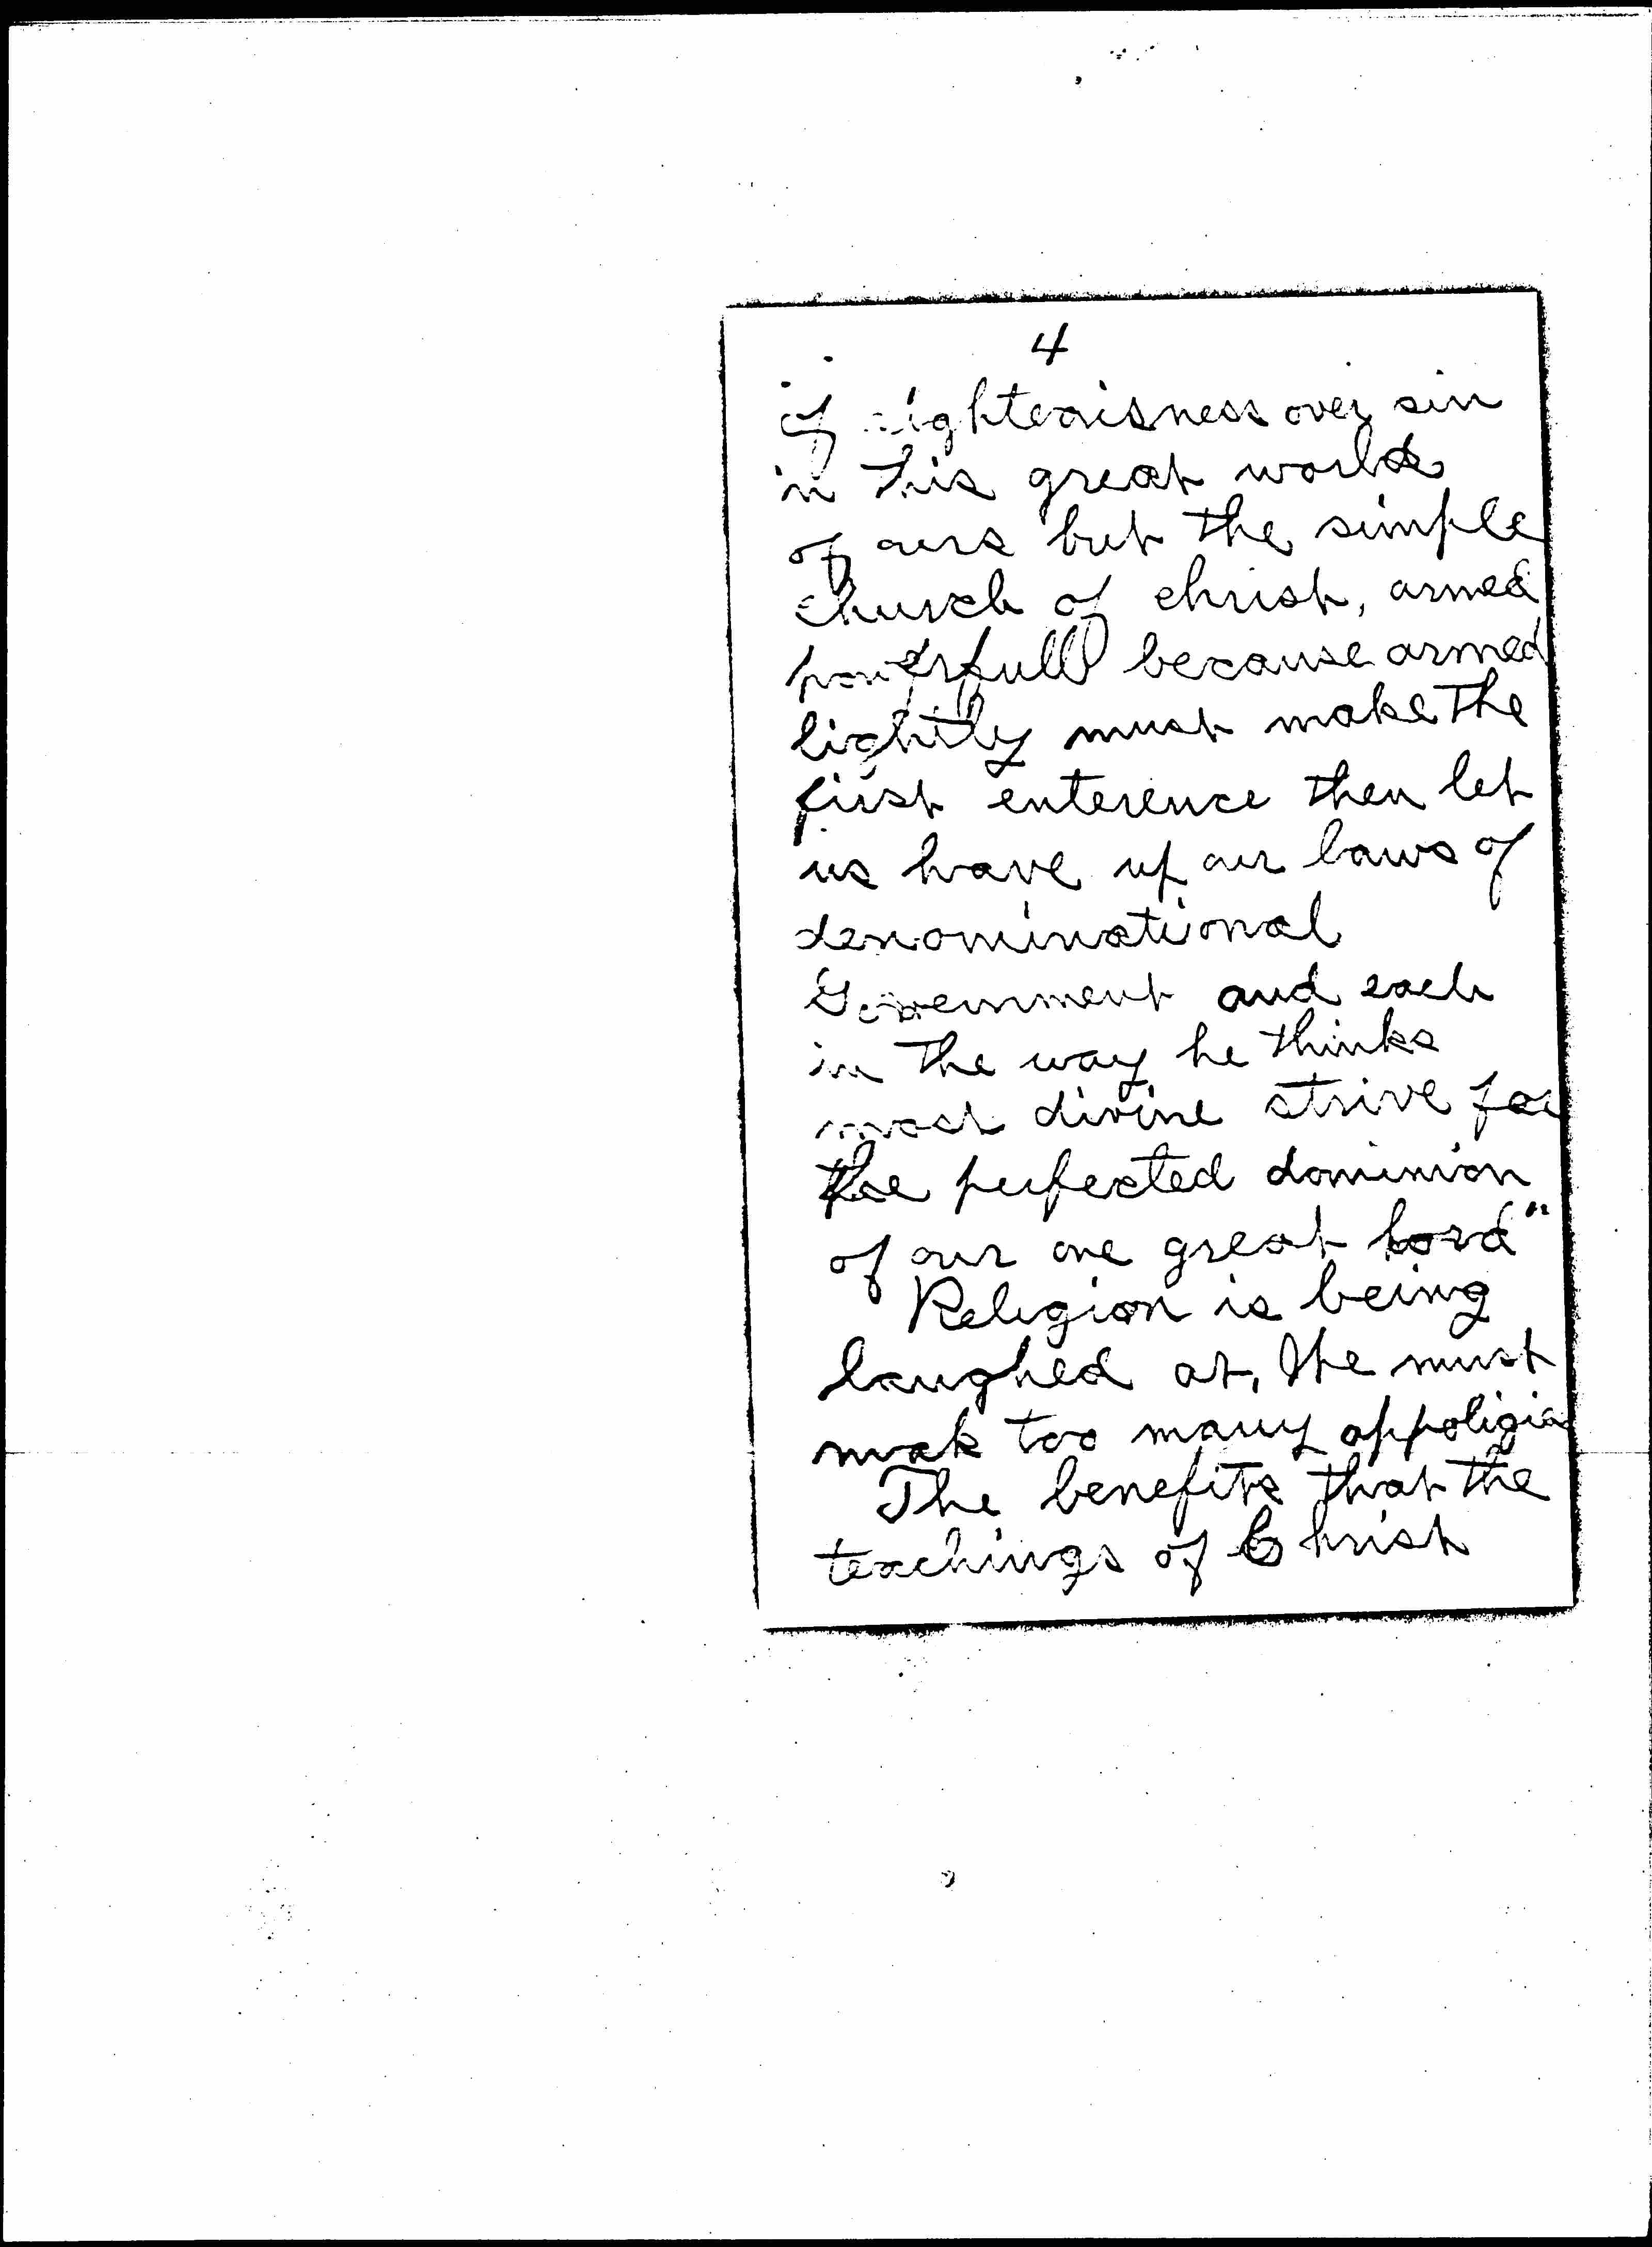 4
of righteoisness over sin
in this great world
of ours but the simple
church of christ, armed
powerfull because armed
lightly must make the
first enterence then let
us have up our laws of
denominational
Government and each
in the way he thinks
most divine strive for
the perfected dominion
of our one great lord"
Religion is being
laughed at, the must
mak too many
The benefits that the
teachings of Christ